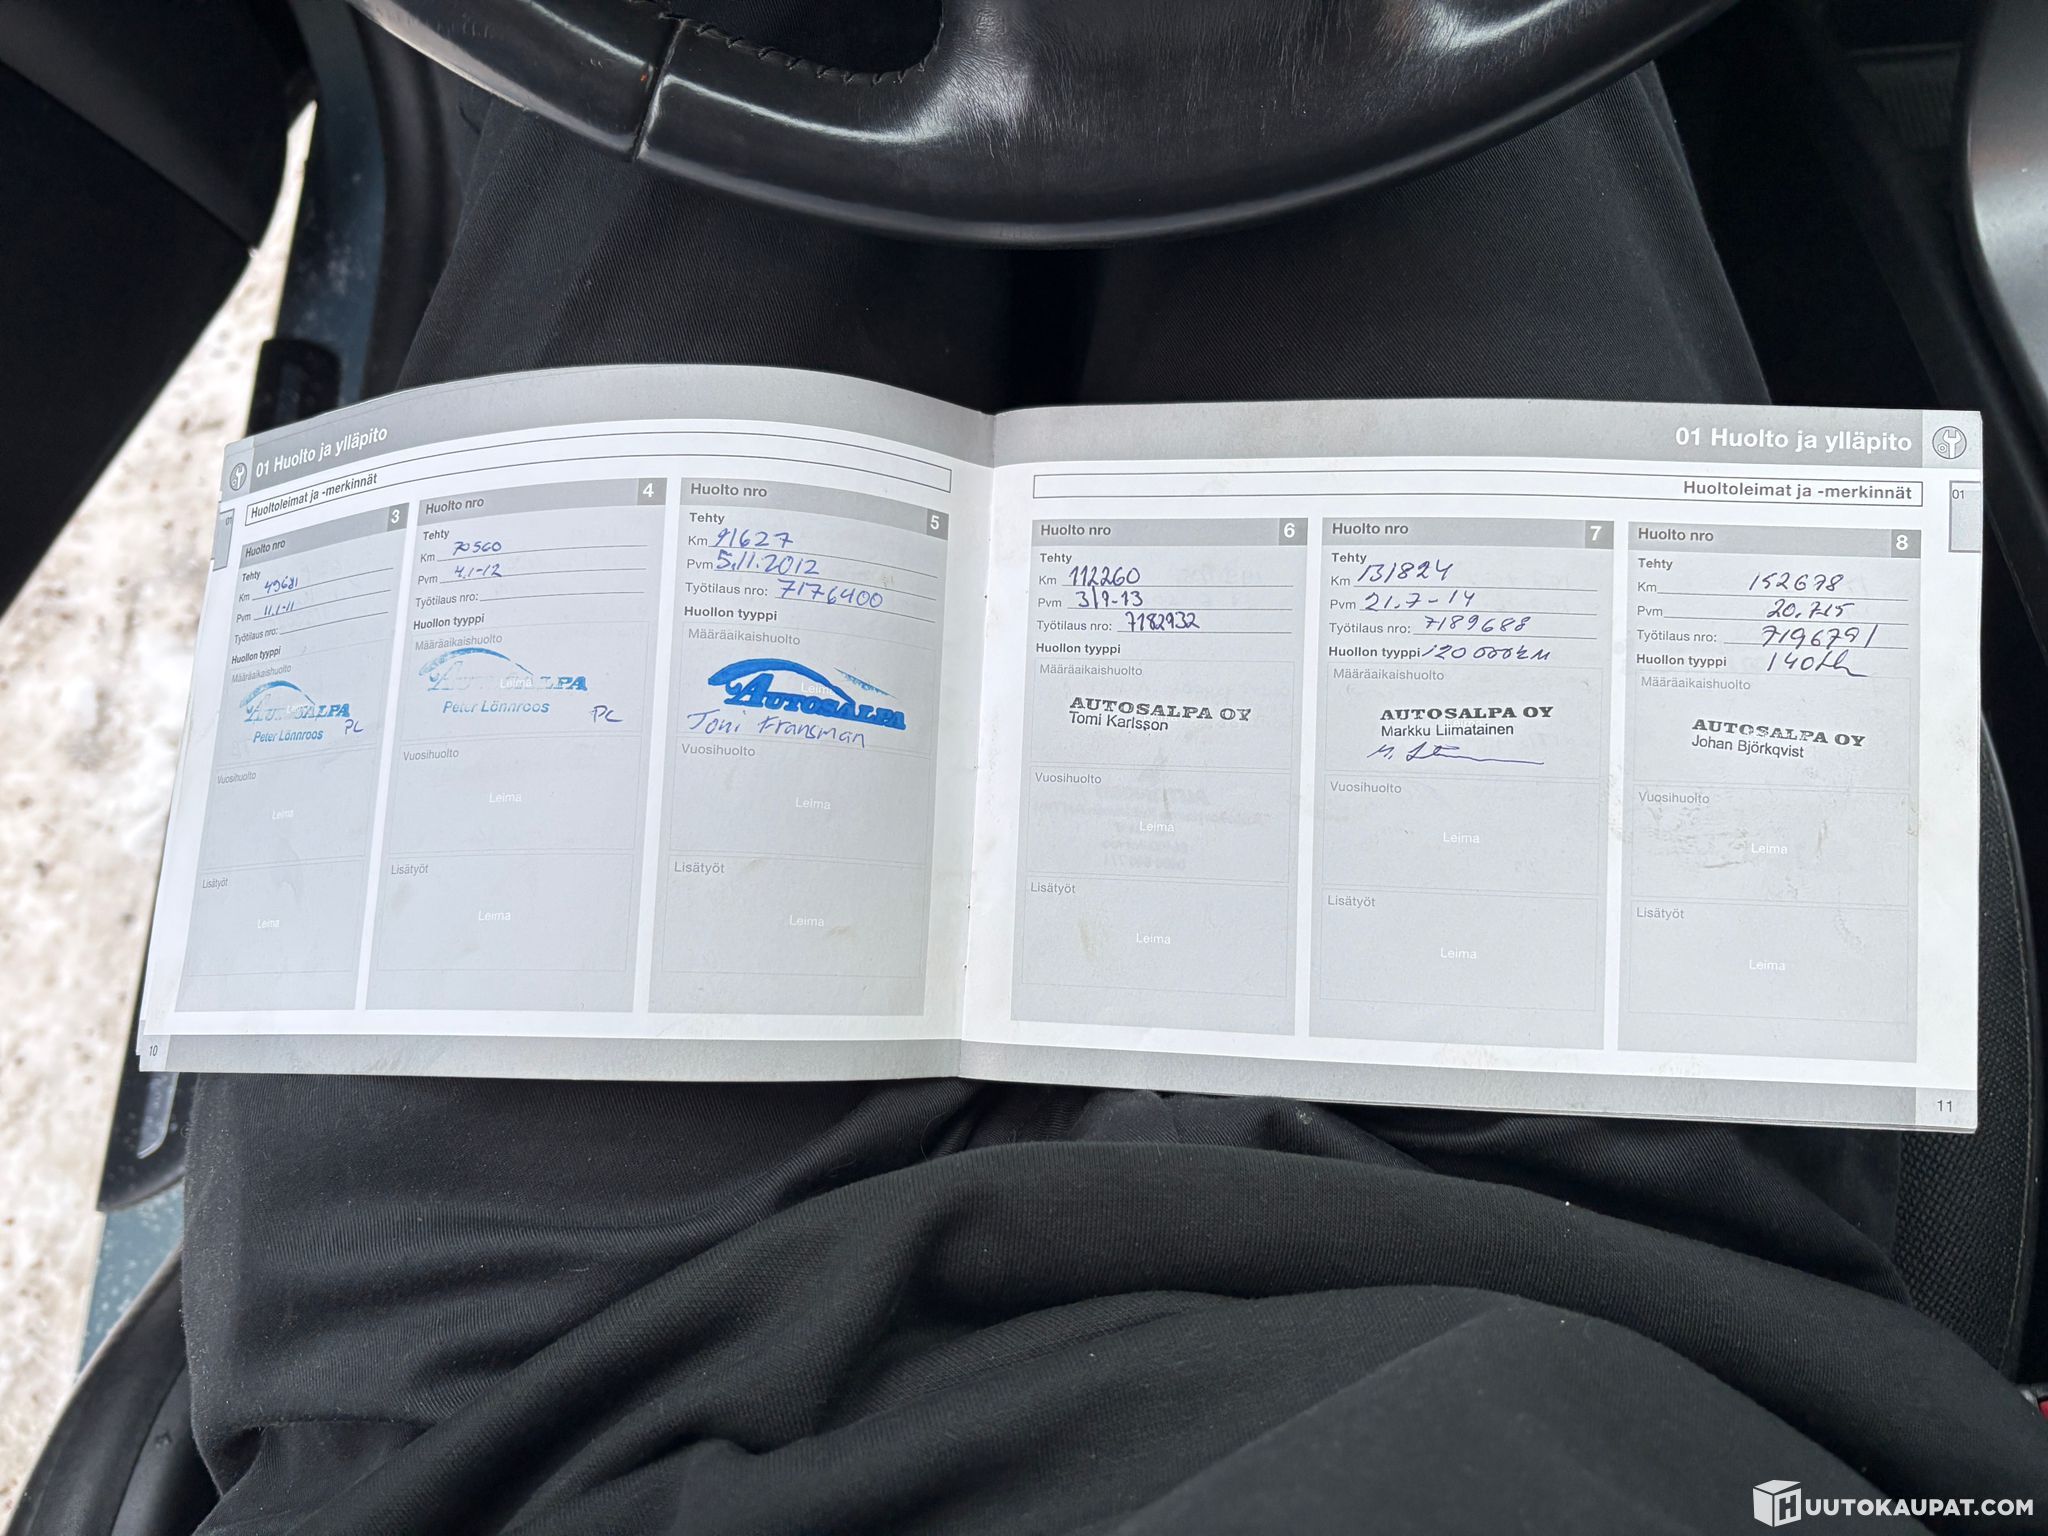 01 Huolto ja ylläpito
Huoltoleimat ja -merkinnät
01
Huolto nro 3
Tehty
Km 49681
Pvm 11.1-11
Työtilaus nro:
Huollon tyyppi
Määräaikaishuolto
Leima
AUTOSALPA
Peter Lönnroos PL
Vuosihuolto
Leima
Lisätyöt
Leima
Huolto nro 4
Tehty
Km 70560
Pvm 4.1-12
Työtilaus nro:
Huollon tyyppi
Määräaikaishuolto
Leima
AUTOSALPA
Peter Lönnroos PL
Vuosihuolto
Leima
Lisätyöt
Leima
Huolto nro 5
Tehty
Km 91627
Pvm 5.11.2012
Työtilaus nro: 7176400
Huollon tyyppi
Määräaikaishuolto
Leima
AUTOSALPA
Toni Fransman
Vuosihuolto
Leima
Lisätyöt
Leima
10
01 Huolto ja ylläpito
Huoltoleimat ja -merkinnät
01
Huolto nro 6
Tehty
Km 112260
Pvm 3/9-13
Työtilaus nro: 7182932
Huollon tyyppi
Määräaikaishuolto
AUTOSALPA OY
Tomi Karlsson
Vuosihuolto
Leima
Lisätyöt
Leima
Huolto nro 7
Tehty
Km 131824
Pvm 21.7-14
Työtilaus nro: 7189688
Huollon tyyppi 120 000km
Määräaikaishuolto
AUTOSALPA OY
Markku Liimatainen
Vuosihuolto
Leima
Lisätyöt
Leima
Huolto nro 8
Tehty
Km 152678
Pvm 20.7.15
Työtilaus nro: 7196791
Huollon tyyppi
Määräaikaishuolto
AUTOSALPA OY
Johan Björkqvist
Vuosihuolto
Leima
Lisätyöt
Leima
11
HUUTOKAUPAT.COM